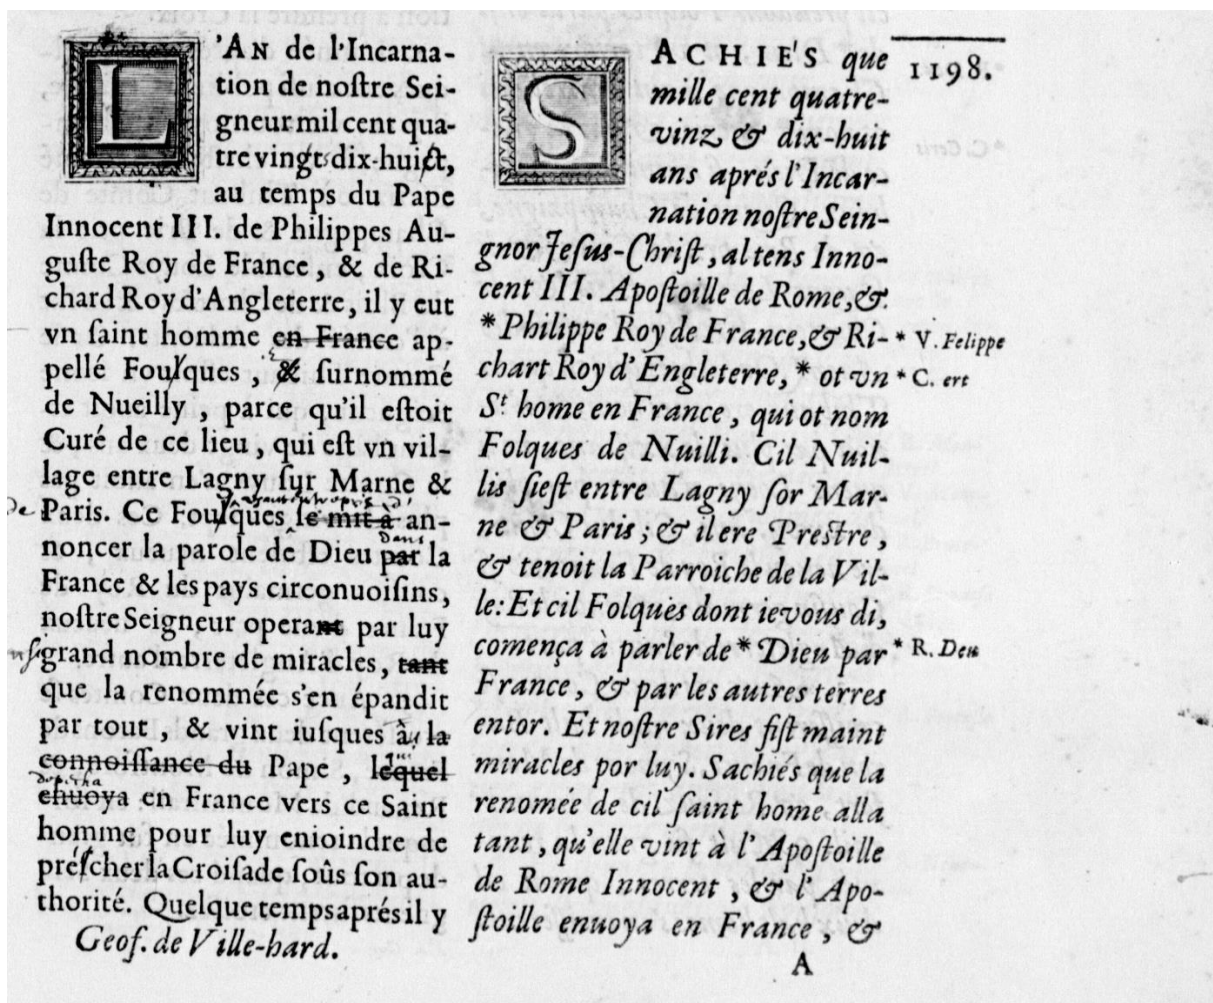 L'AN de l'Incarna-
tion de noſtre Sei-
gneur mil cent qua-
tre vingts dix-huict,
au temps du Pape
Innocent III. de Philippes Au-
guſte Roy de France, & de Ri-
chard Roy d'Angleterre, il y eut
vn ſaint homme en France ap-
pellé Foulques, & ſurnommé
de Nueilly, parce qu'il eſtoit
Curé de ce lieu, qui eſt vn vil-
lage entre Lagny ſur Marne &
Paris. Ce Foulques ſe mit à an-
noncer la parole de Dieu par la
dans
France & les pays circonuoiſins,
noſtre Seigneur operant par luy
grand nombre de miracles, tant
que la renommée s'en épandit
par tout, & vint iuſques à la
connoiſſance du Pape, lequel
enuoya en France vers ce Saint
homme pour luy enioindre de
préſcher la Croiſade ſoûs ſon au-
thorité. Quelque temps aprés il y
Geof. de Ville-hard.
SACHIE'S que
mille cent quatre-
vinz & dix-huit
ans aprés l'Incar-
nation noſtre Sein-
gnor Jeſus-Chriſt, al tens Inno-
cent III. Apoſtoille de Rome, &
*Philippe Roy de France, & Ri-
chart Roy d'Engleterre, * ot vn
St home en France, qui ot nom
Folques de Nuilli. Cil Nuil-
lis ſieſt entre Lagny ſor Mar-
ne & Paris; & il ere Preſtre,
& tenoit la Parroiche de la Vil-
le: Et cil Folques dont ie vous di,
comença à parler de * Dieu par
France, & par les autres terres
entor. Et noſtre Sires fiſt maint
miracles por luy. Sachiés que la
renomée de cil ſaint home alla
tant, qu'elle vint à l'Apoſtoille
de Rome Innocent, & l'Apo-
ſtoille enuoya en France, &
A
1198.
* V. Felippe
* C. ert
* R. Deu